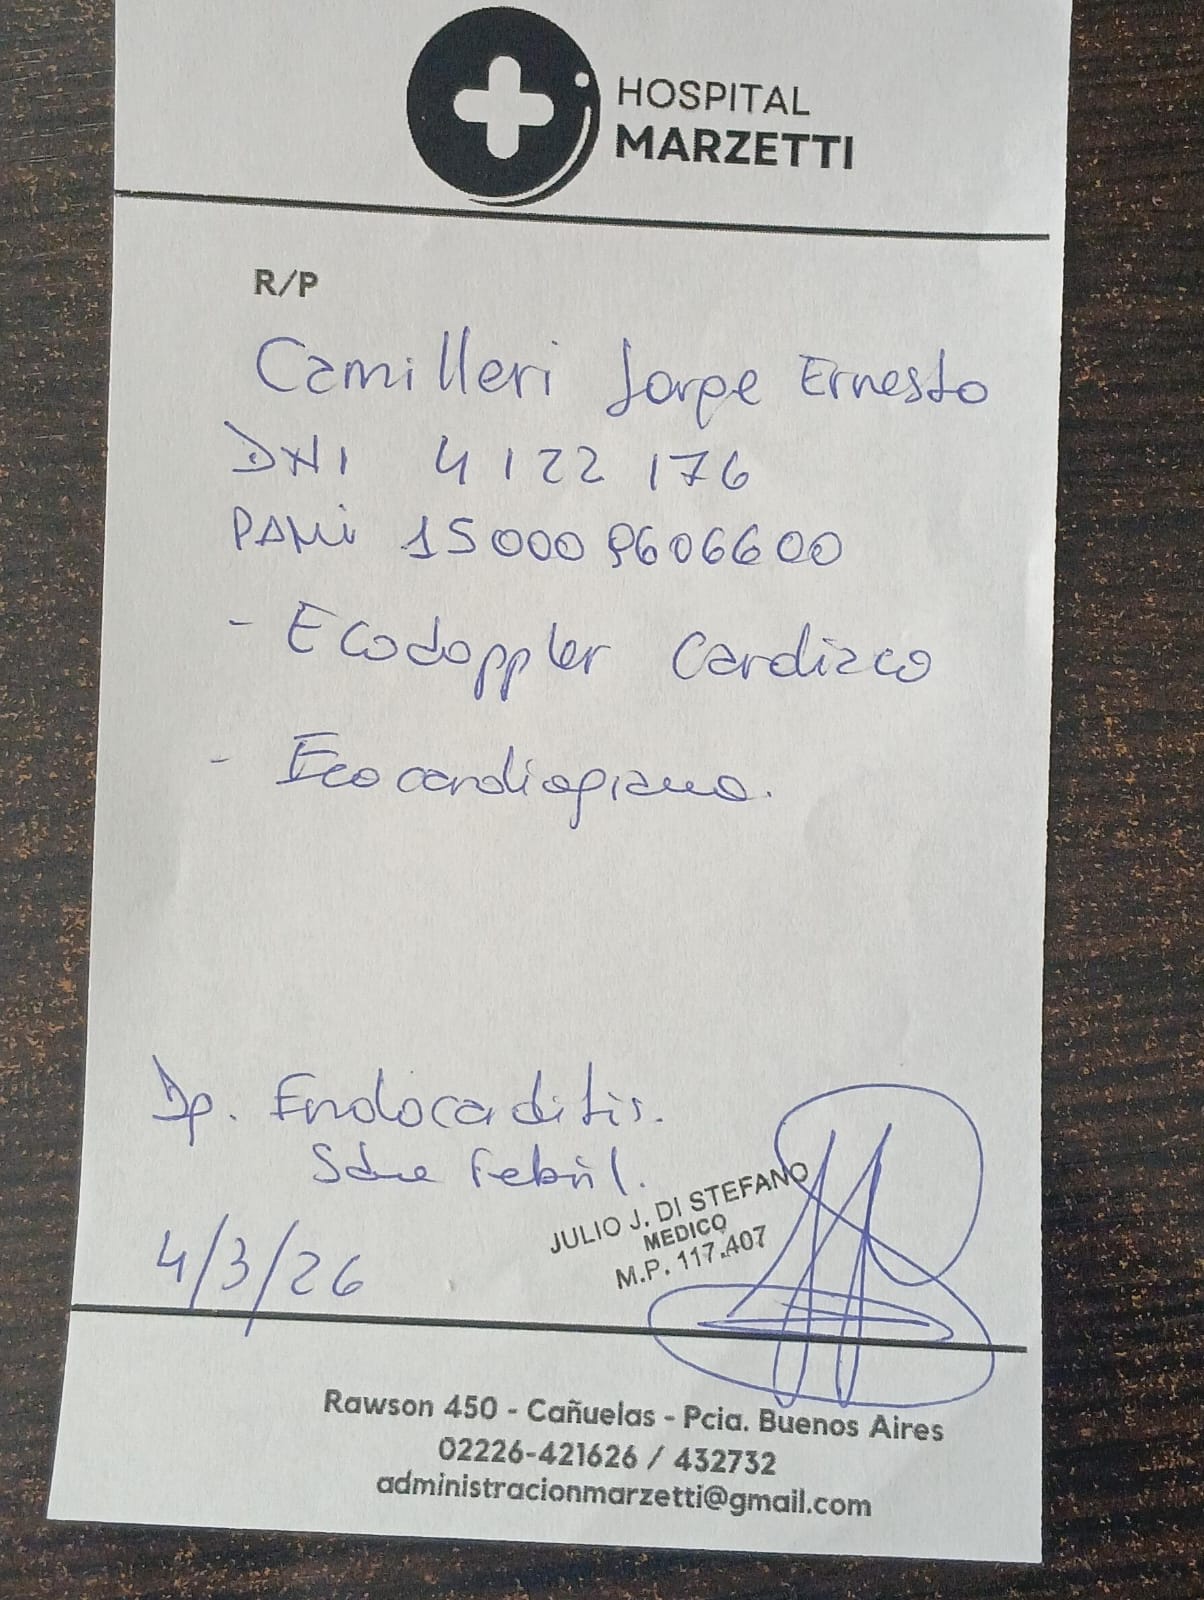 HOSPITAL
MARZETTI
R/P
Camilleri Jorge Ernesto
DNI 4122176
PAMI 150009606600
- Ecodoppler Cardiaco
- Ecocardiograma.
Dg. Endocaditis.
Sdre Febril.
JULIO J. DI STEFANO
MEDICO
M.P. 117.407
4/3/26
Rawson 450 - Cañuelas - Pcia. Buenos Aires
02226-421626 / 432732
administracionmarzetti@gmail.com